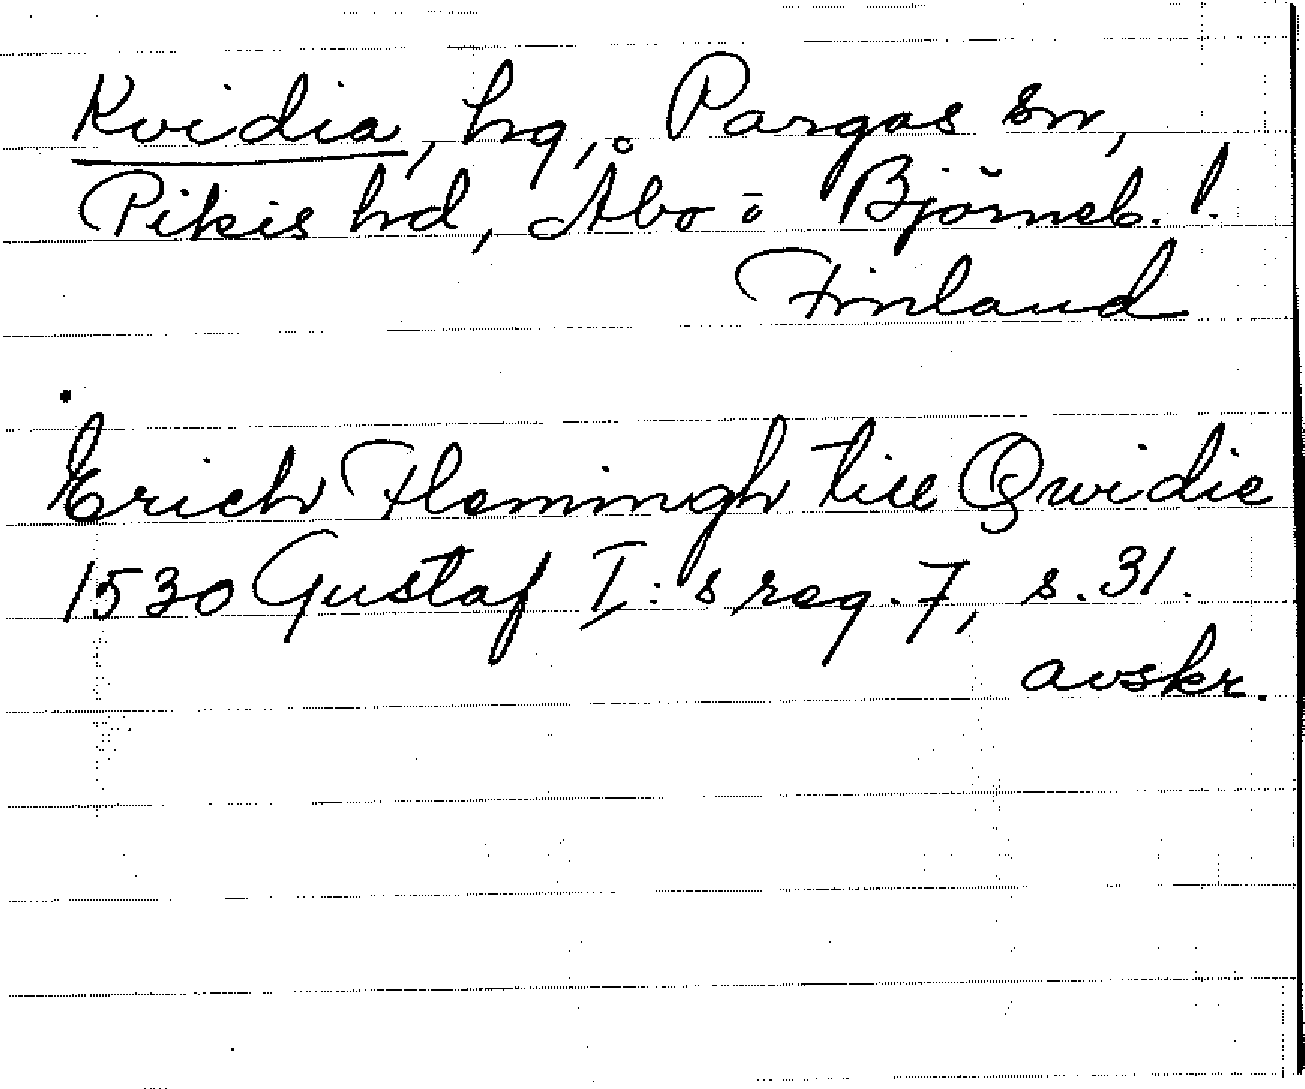 Kvidia, hg, Pargas sn,
Pikis hd, Åbo o Björneb. l.
Finland
Erich Flemmingh till Qwidie
1530 Gustaf I:s reg. 7, s. 31.
avskr.